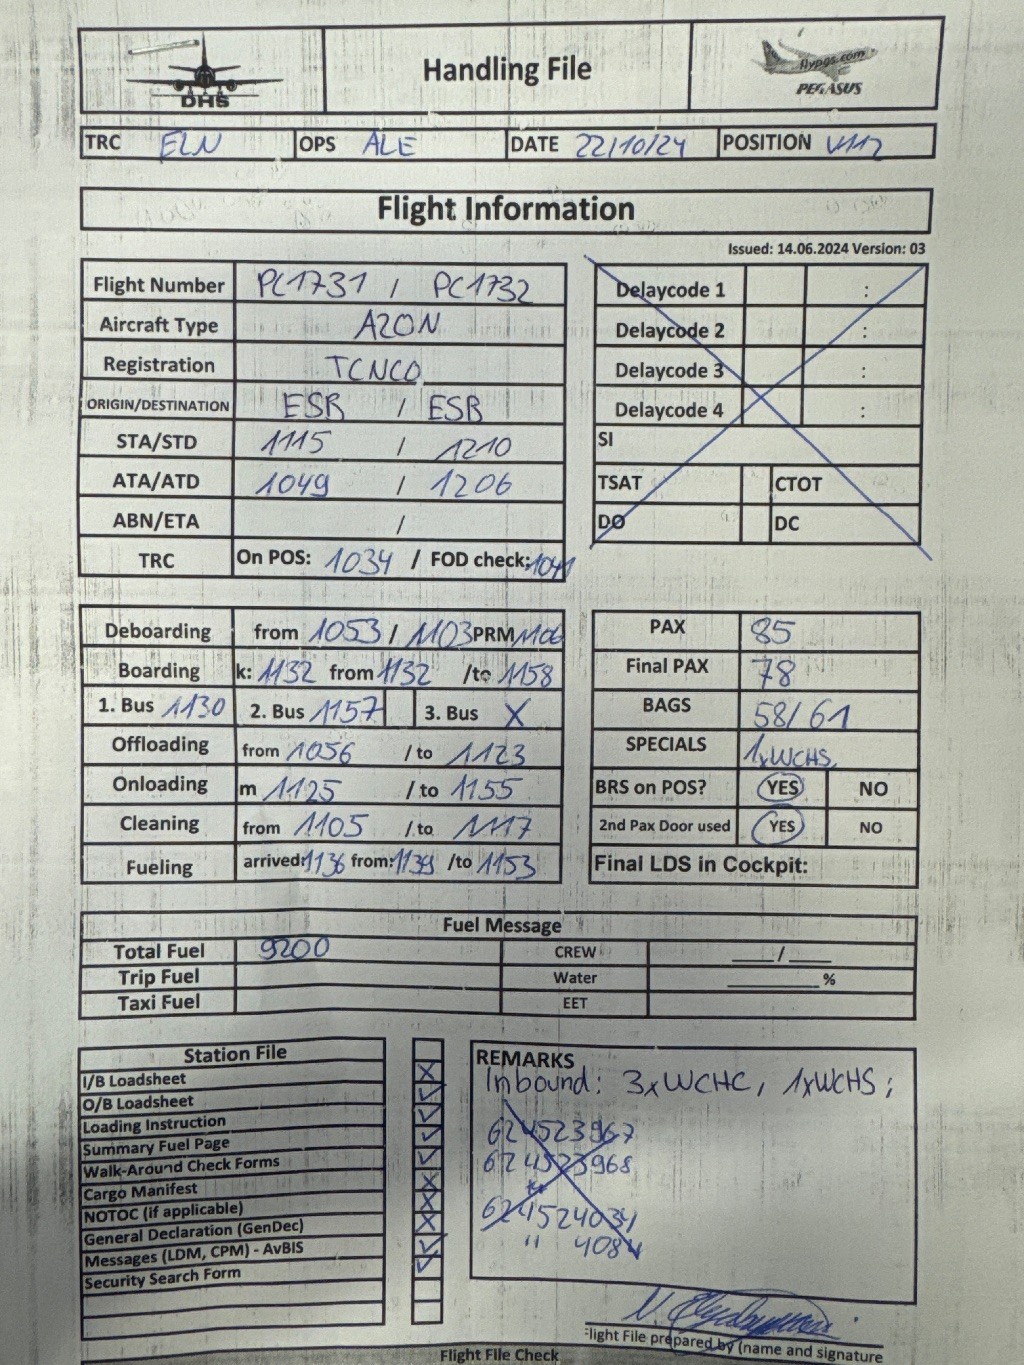 DHS
Handling File
flypgs.com
PEGASUS
TRC ELN OPS ALE DATE 22/10/24 POSITION V112
Flight Information
Issued: 14.06.2024 Version: 03
Flight Number PC1731 / PC1732
Aircraft Type A20N
Registration TCNCO
ORIGIN/DESTINATION ESB / ESB
STA/STD 1115 / 1210
ATA/ATD 1049 / 1206
ABN/ETA /
TRC On POS: 1034 / FOD check: 1041
Delaycode 1 :
Delaycode 2 :
Delaycode 3 :
Delaycode 4 :
SI
TSAT CTOT
DO DC
Deboarding from 1053 / 1103 PRM 1106
Boarding k: 1132 from 1132 /to 1158
1. Bus 1130 2. Bus 1157 3. Bus X
Offloading from 1056 / to 1123
Onloading m 1125 / to 1155
Cleaning from 1105 / to 1117
Fueling arrived: 1136 from: 1139 /to 1153
PAX 85
Final PAX 78
BAGS 58/61
SPECIALS 1xWCHS
BRS on POS? YES NO
2nd Pax Door used YES NO
Final LDS in Cockpit:
Fuel Message
Total Fuel 9200 CREW ____/____
Trip Fuel Water ________%
Taxi Fuel EET
Station File
I/B Loadsheet
O/B Loadsheet
Loading Instruction
Summary Fuel Page
Walk-Around Check Forms
Cargo Manifest
NOTOC (if applicable)
General Declaration (GenDec)
Messages (LDM, CPM) - AvBIS
Security Search Form
REMARKS
Inbound: 3xWCHC, 1xWCHS;
624523967
624523968
624524031
" 4084
Flight File prepared by (name and signature
Flight File Check